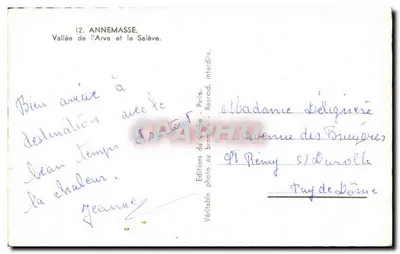 12. ANNEMASSE.
Vallée de l'Arve et le Salève.
Bien arrivée à
destination avec le
beau temps
la chaleur.
Jeanne
Editions du Cygne - Paris.
Véritable photo au bromure - Reprod. interdite.
Madame Déliguère
avenue des Bruyères
St Rémy s/Durolle
Puy de Dôme